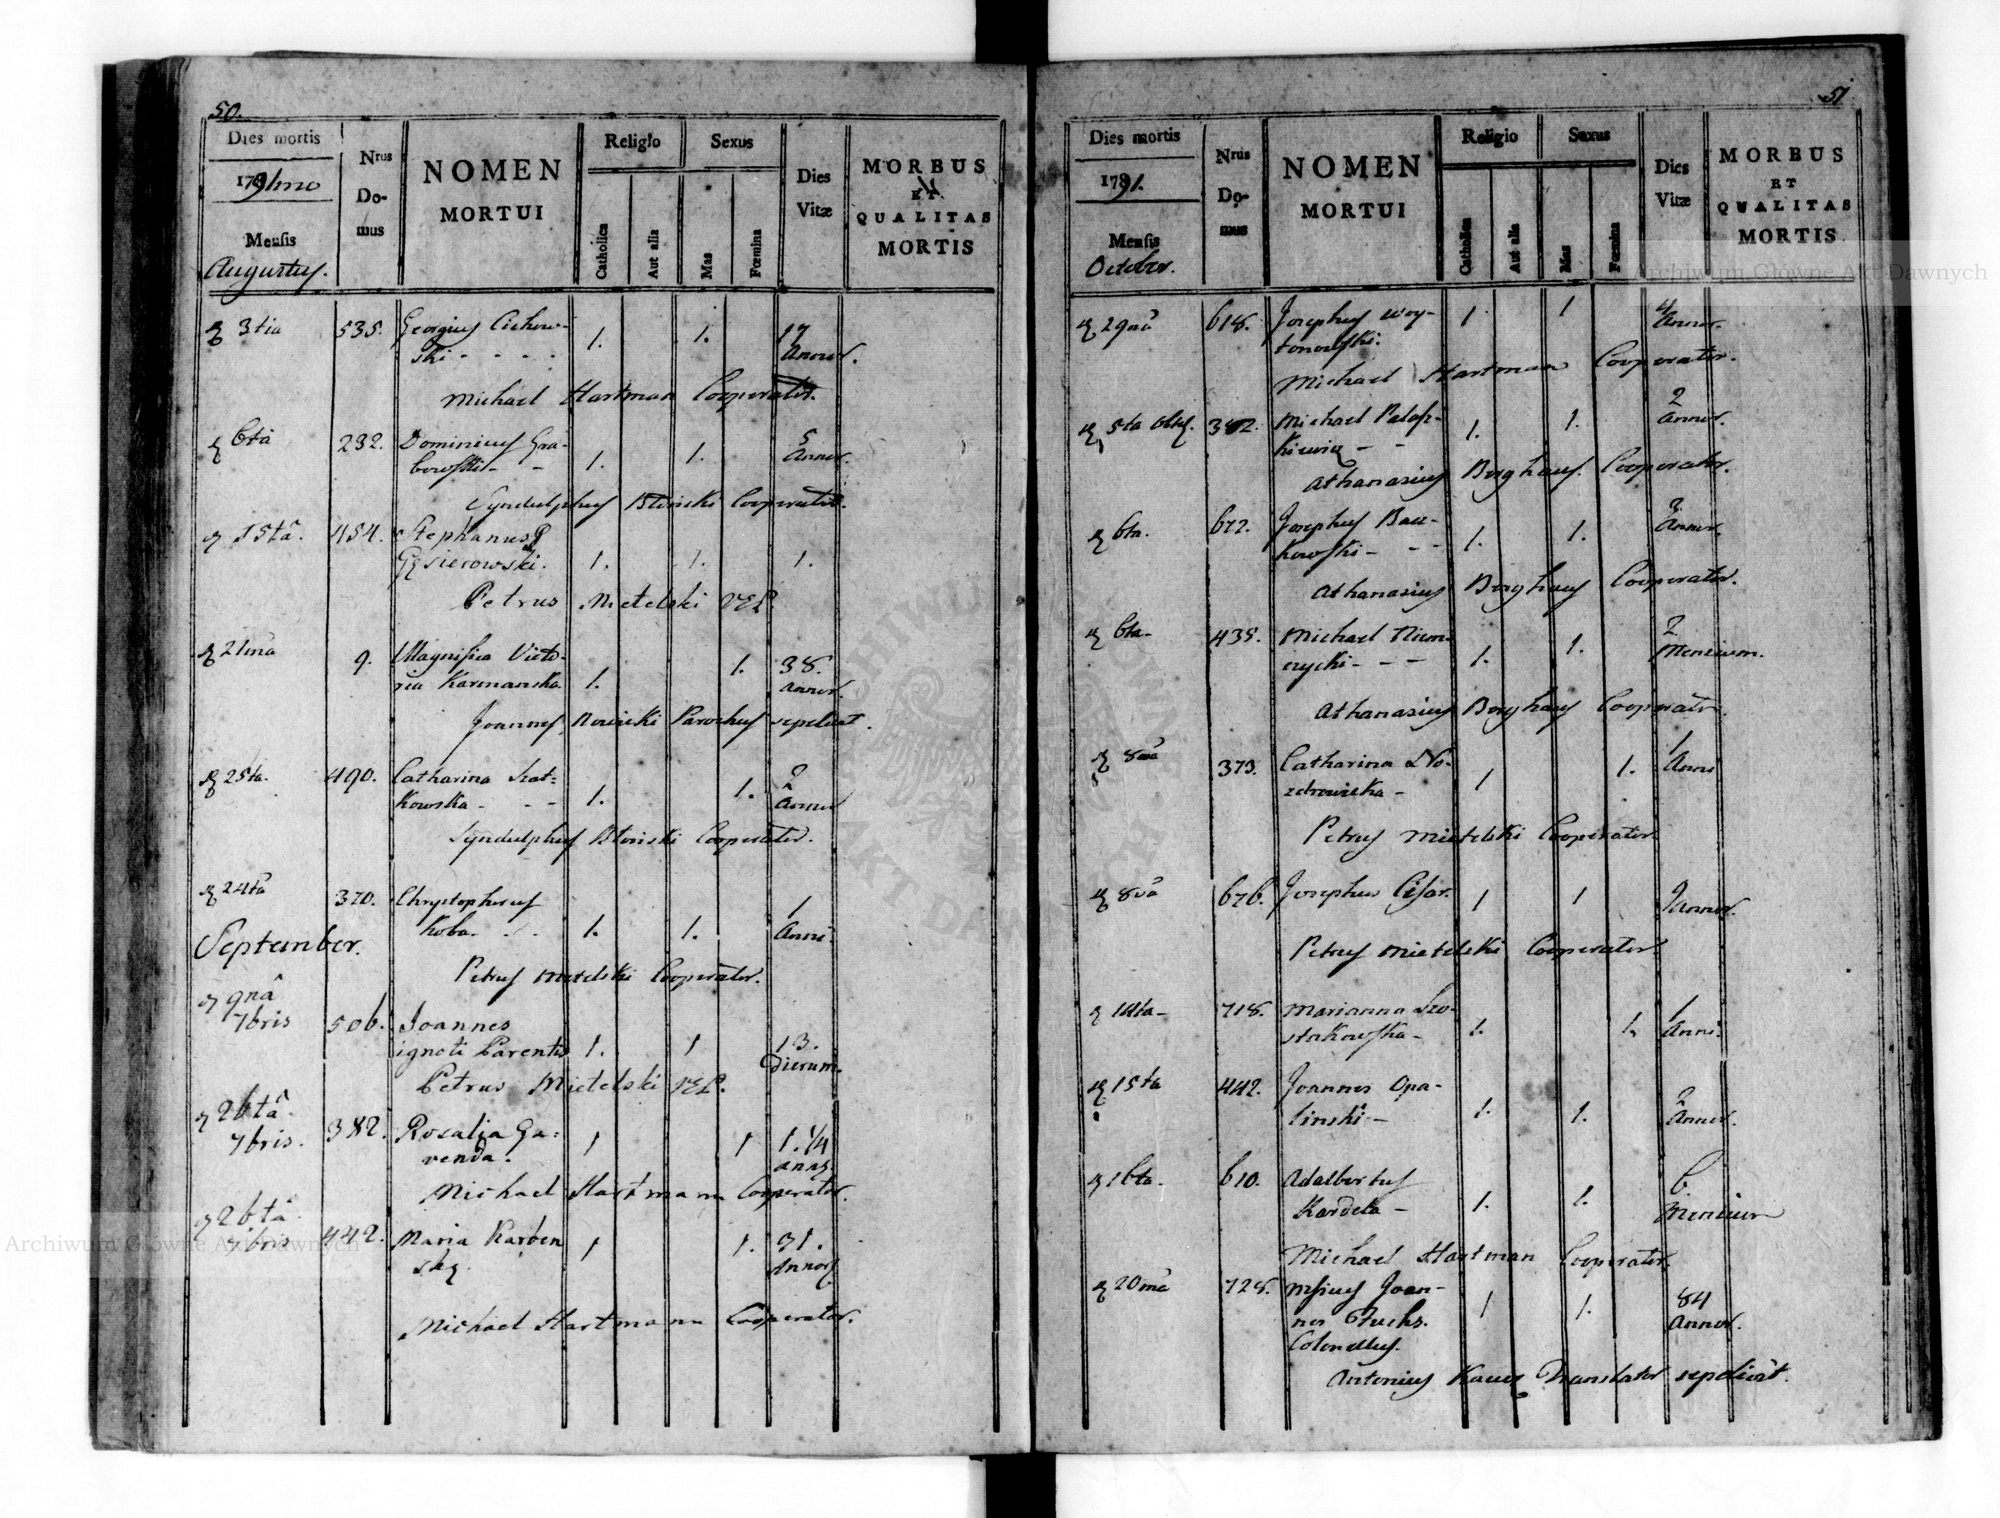 50.
Dies mortis
1791mo
Mensis
Augustus.
Nrus
Do-
mus
NOMEN
MORTUI
Religio
Catholica
Aut alia
Sexus
Mas
Fœmina
Dies
Vitæ
MORBUS
ET
QUALITAS
MORTIS
3tia 535. Georgius Cichow- 1. 1. 17
ski - - - - Annor.
Michael Hartman Cooperator.
6ta 232. Dominicus Gra- 5
bowski - - 1. 1. Annor.
Syndulphus Błonski Cooperator.
15tâ. 454. Stephanus
Gąsierowski. 1. 1. 1.
Petrus Mietelski VEP.
21mâ 9. Magnifica Victo- 1. 38.
ria Karmanska 1. Annor.
Joannes Nowicki Parochus sepelivit.
25ta. 490. Catharina Szat- 2
kowska - - - 1. 1. Annor
Syndulphus Błonski Cooperator.
24tâ 370. Chrystophorus 1
Koba. - - 1. 1. Anni.
September.
Petrus Mietelski Cooperator.
9nâ
7bris 506. Joannes
ignoti Parentis 1. 1 13.
Dierum.
Petrus Mietelski VEP.
26tâ
7bris. 382. Rosalia Ga-
venda. 1 1 1.1/4
Michael Hartmann Cooperator.
26tâ
7bris 442. Maria Karben 1 1. 31.
Annor.
Michael Hartmann Cooperator.
51
Dies mortis
1791.
Mensis
October.
Nrus
Do-
mus
NOMEN
MORTUI
Religio
Catholica
Aut alia
Sexus
Mas
Fœmina
Dies
Vitæ
MORBUS
ET
QUALITAS
MORTIS
Archiwum Główne Akt Dawnych
29nâ 618. Josephus Woy- 1 1 4
tonowski. Annor.
Michael Hartman Cooperator.
5ta 8bris. 382. Michael Palasz- 2
kiewicz - - 1. 1. Annor.
Athanasius Borghaus Cooperator.
6ta. 672. Josephus Bau- 2
kowski - - - 1. 1. Annor.
Athanasius Borghaus Cooperator.
6ta- 435. Michael Niem- 2
czycki - - - 1. 1. Mensium.
Athanasius Borghaus Cooperator.
8va 373. Catharina No- 1
zdrowicka - 1 1. Anni
Petrus Mietelski Cooperator.
8vâ 676. Josephus Cesar. 1 1 2 Annor.
Petrus Mietelski Cooperator.
14ta- 718. Marianna Szo- 1
stakowska - 1. 1. Anni.
15ta 442. Joannes Opa- 2
linski - 1. 1. Annor.
16ta. 610. Adalbertus 6
Kardela - 1. 1. Mensium
Michael Hartman Cooperator.
20ma 728. Joan- 84
nes Fuchs. 1 1. Annor.
Colonellus.
Antonius Translator sepelivit.
Archiwum Główne Akt Dawnych